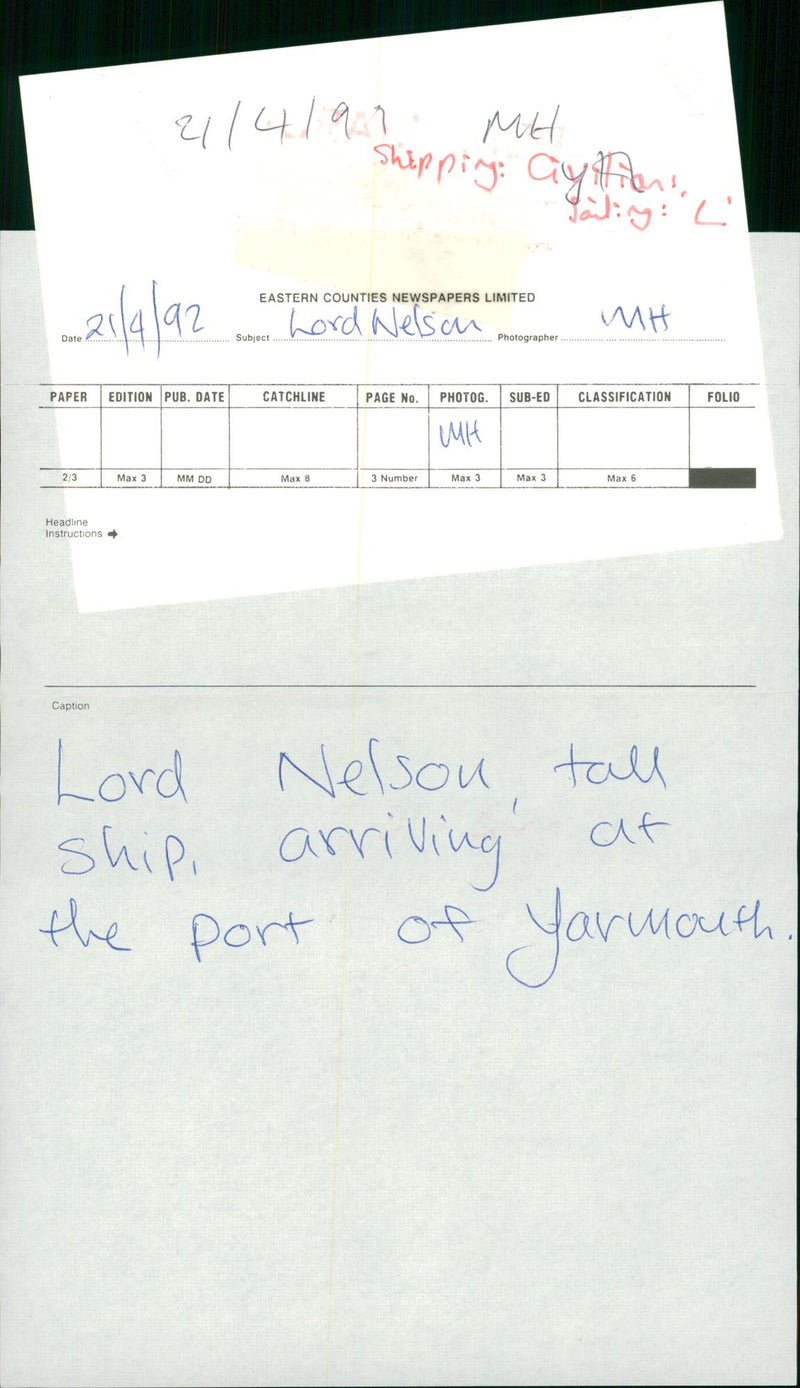 21/4/92 MH
Shipping: Civilian:
Sailing: 'L'
EASTERN COUNTIES NEWSPAPERS LIMITED
Date 21/4/92 Subject Lord Nelson Photographer MH
PAPER EDITION PUB. DATE CATCHLINE PAGE No. PHOTOG. SUB-ED CLASSIFICATION FOLIO
MH
2/3 Max 3 MM DD Max 8 3 Number Max 3 Max 3 Max 6
Headline
Instructions
Caption
Lord Nelson, tall
ship, arriving at
the port of Yarmouth.